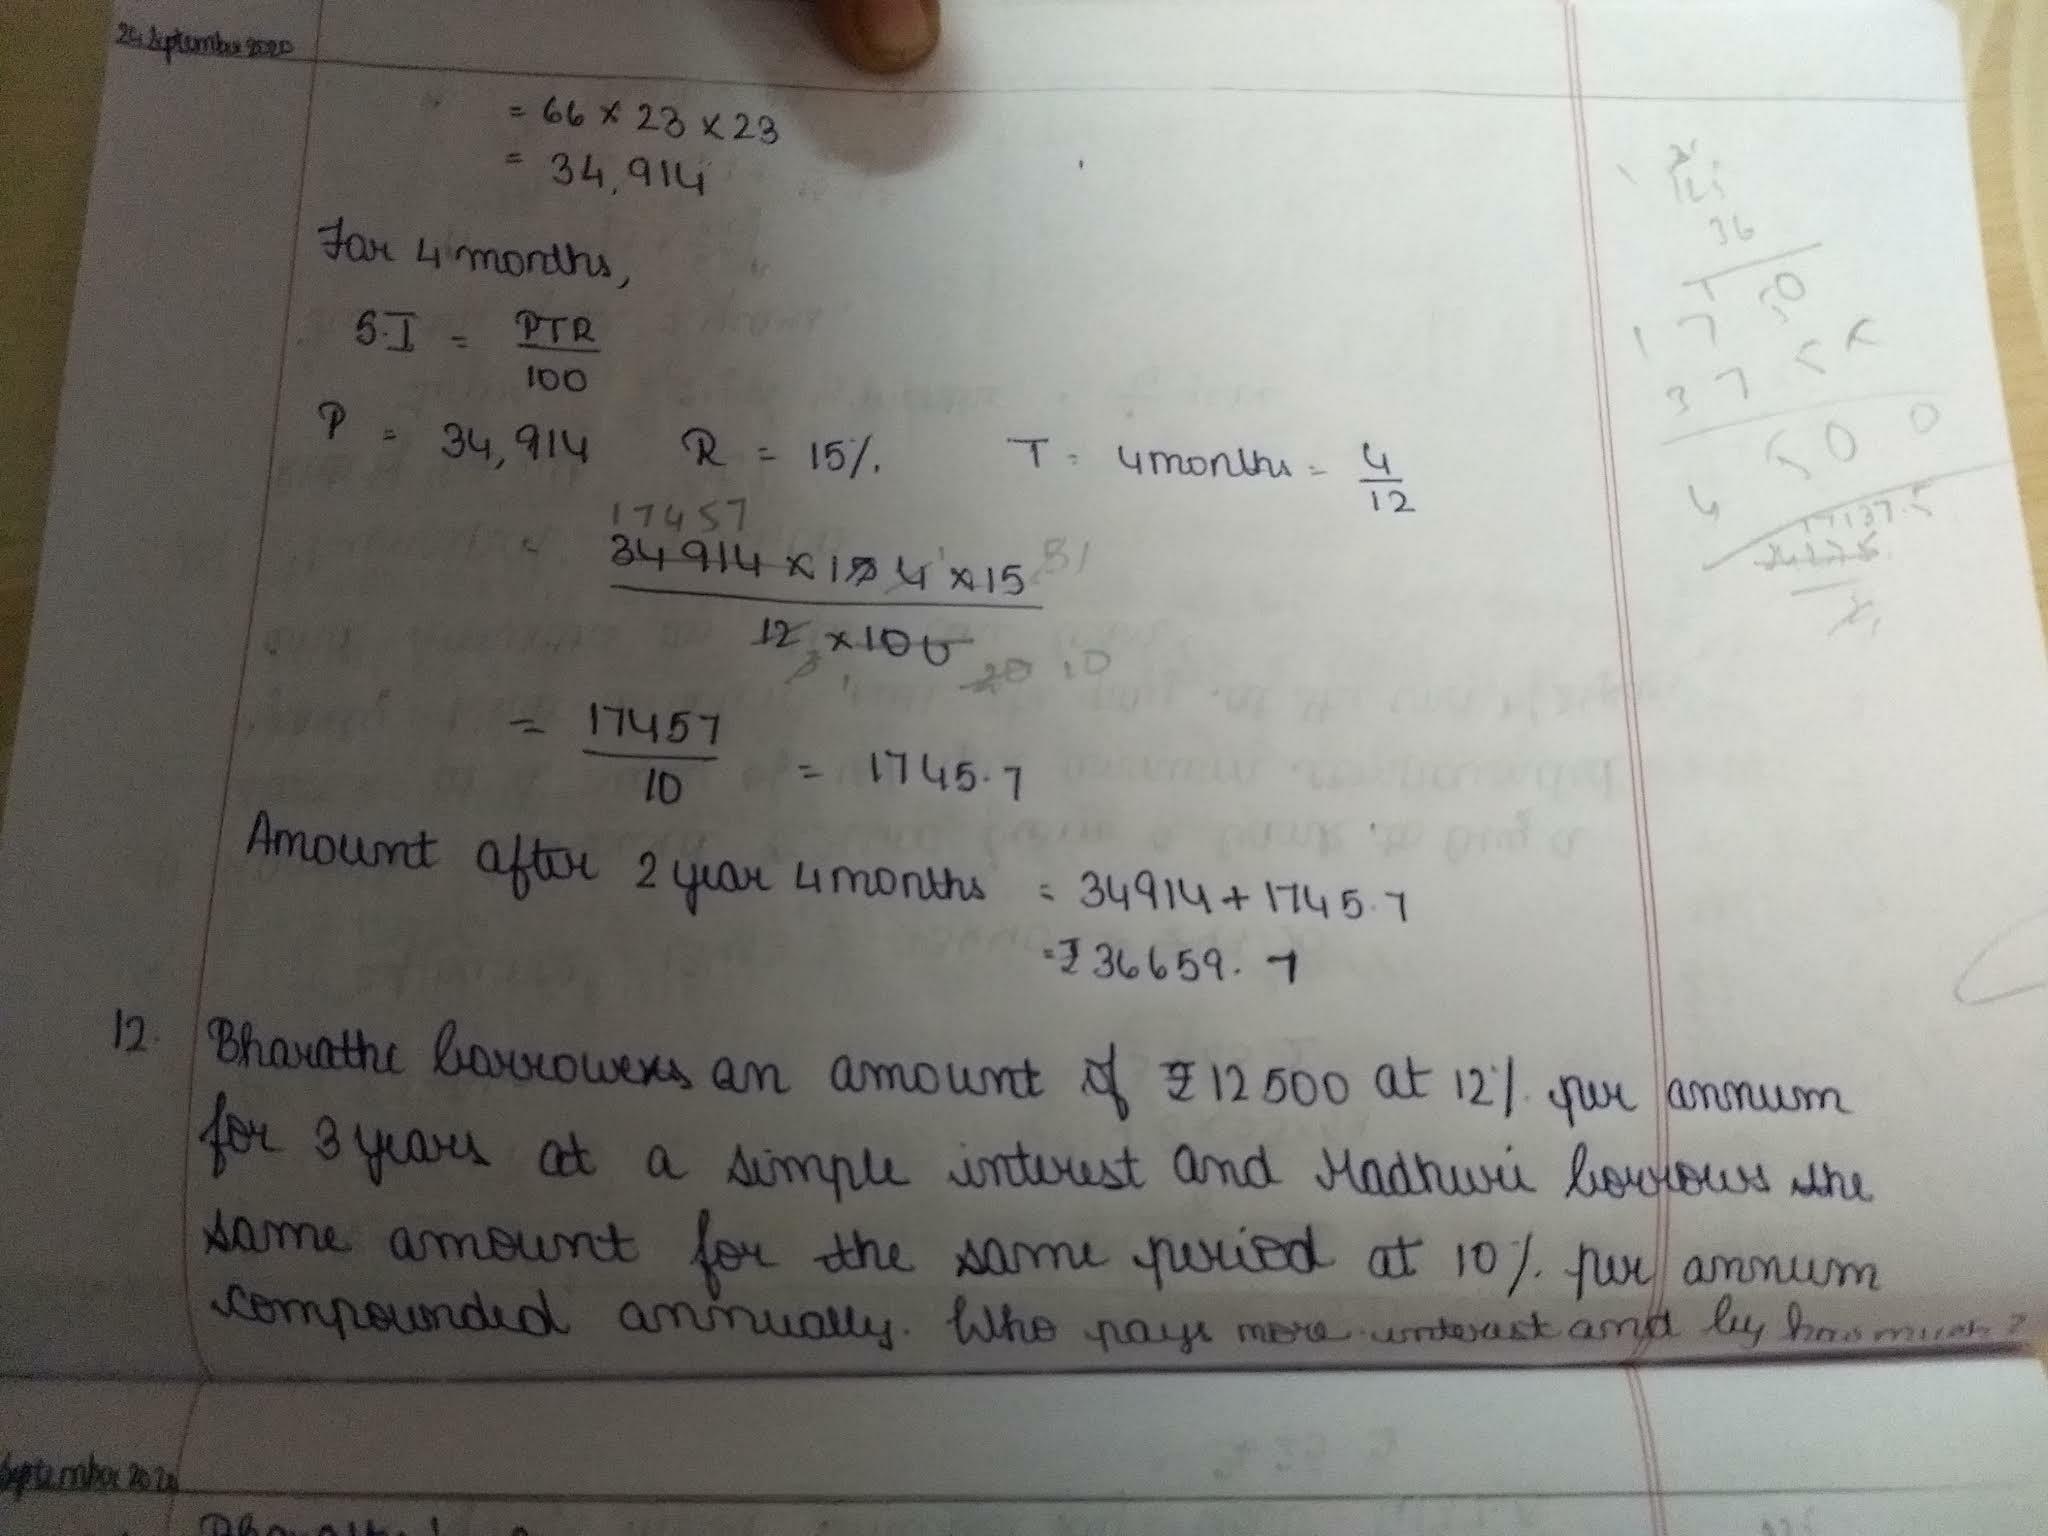 24 September 2020
= 66 × 23 × 23
= 34,914
For 4 months,
S.I = PTR
100
P = 34,914 R = 15% T = 4months = 4
12
17457
34914 × 4 × 15
12 × 100
20 10
= 17457
10 = 1745.7
Amount after 2 year 4months = 34914 + 1745.7
= ₹36659.7
12. Bharathi borrowers an amount of ₹12500 at 12% per annum
for 3 years at a simple interest and Madhuri borrows the
same amount for the same period at 10% per annum
compounded annually. Who pays more interest and by how much?
36
4 5 0 0
September 2020